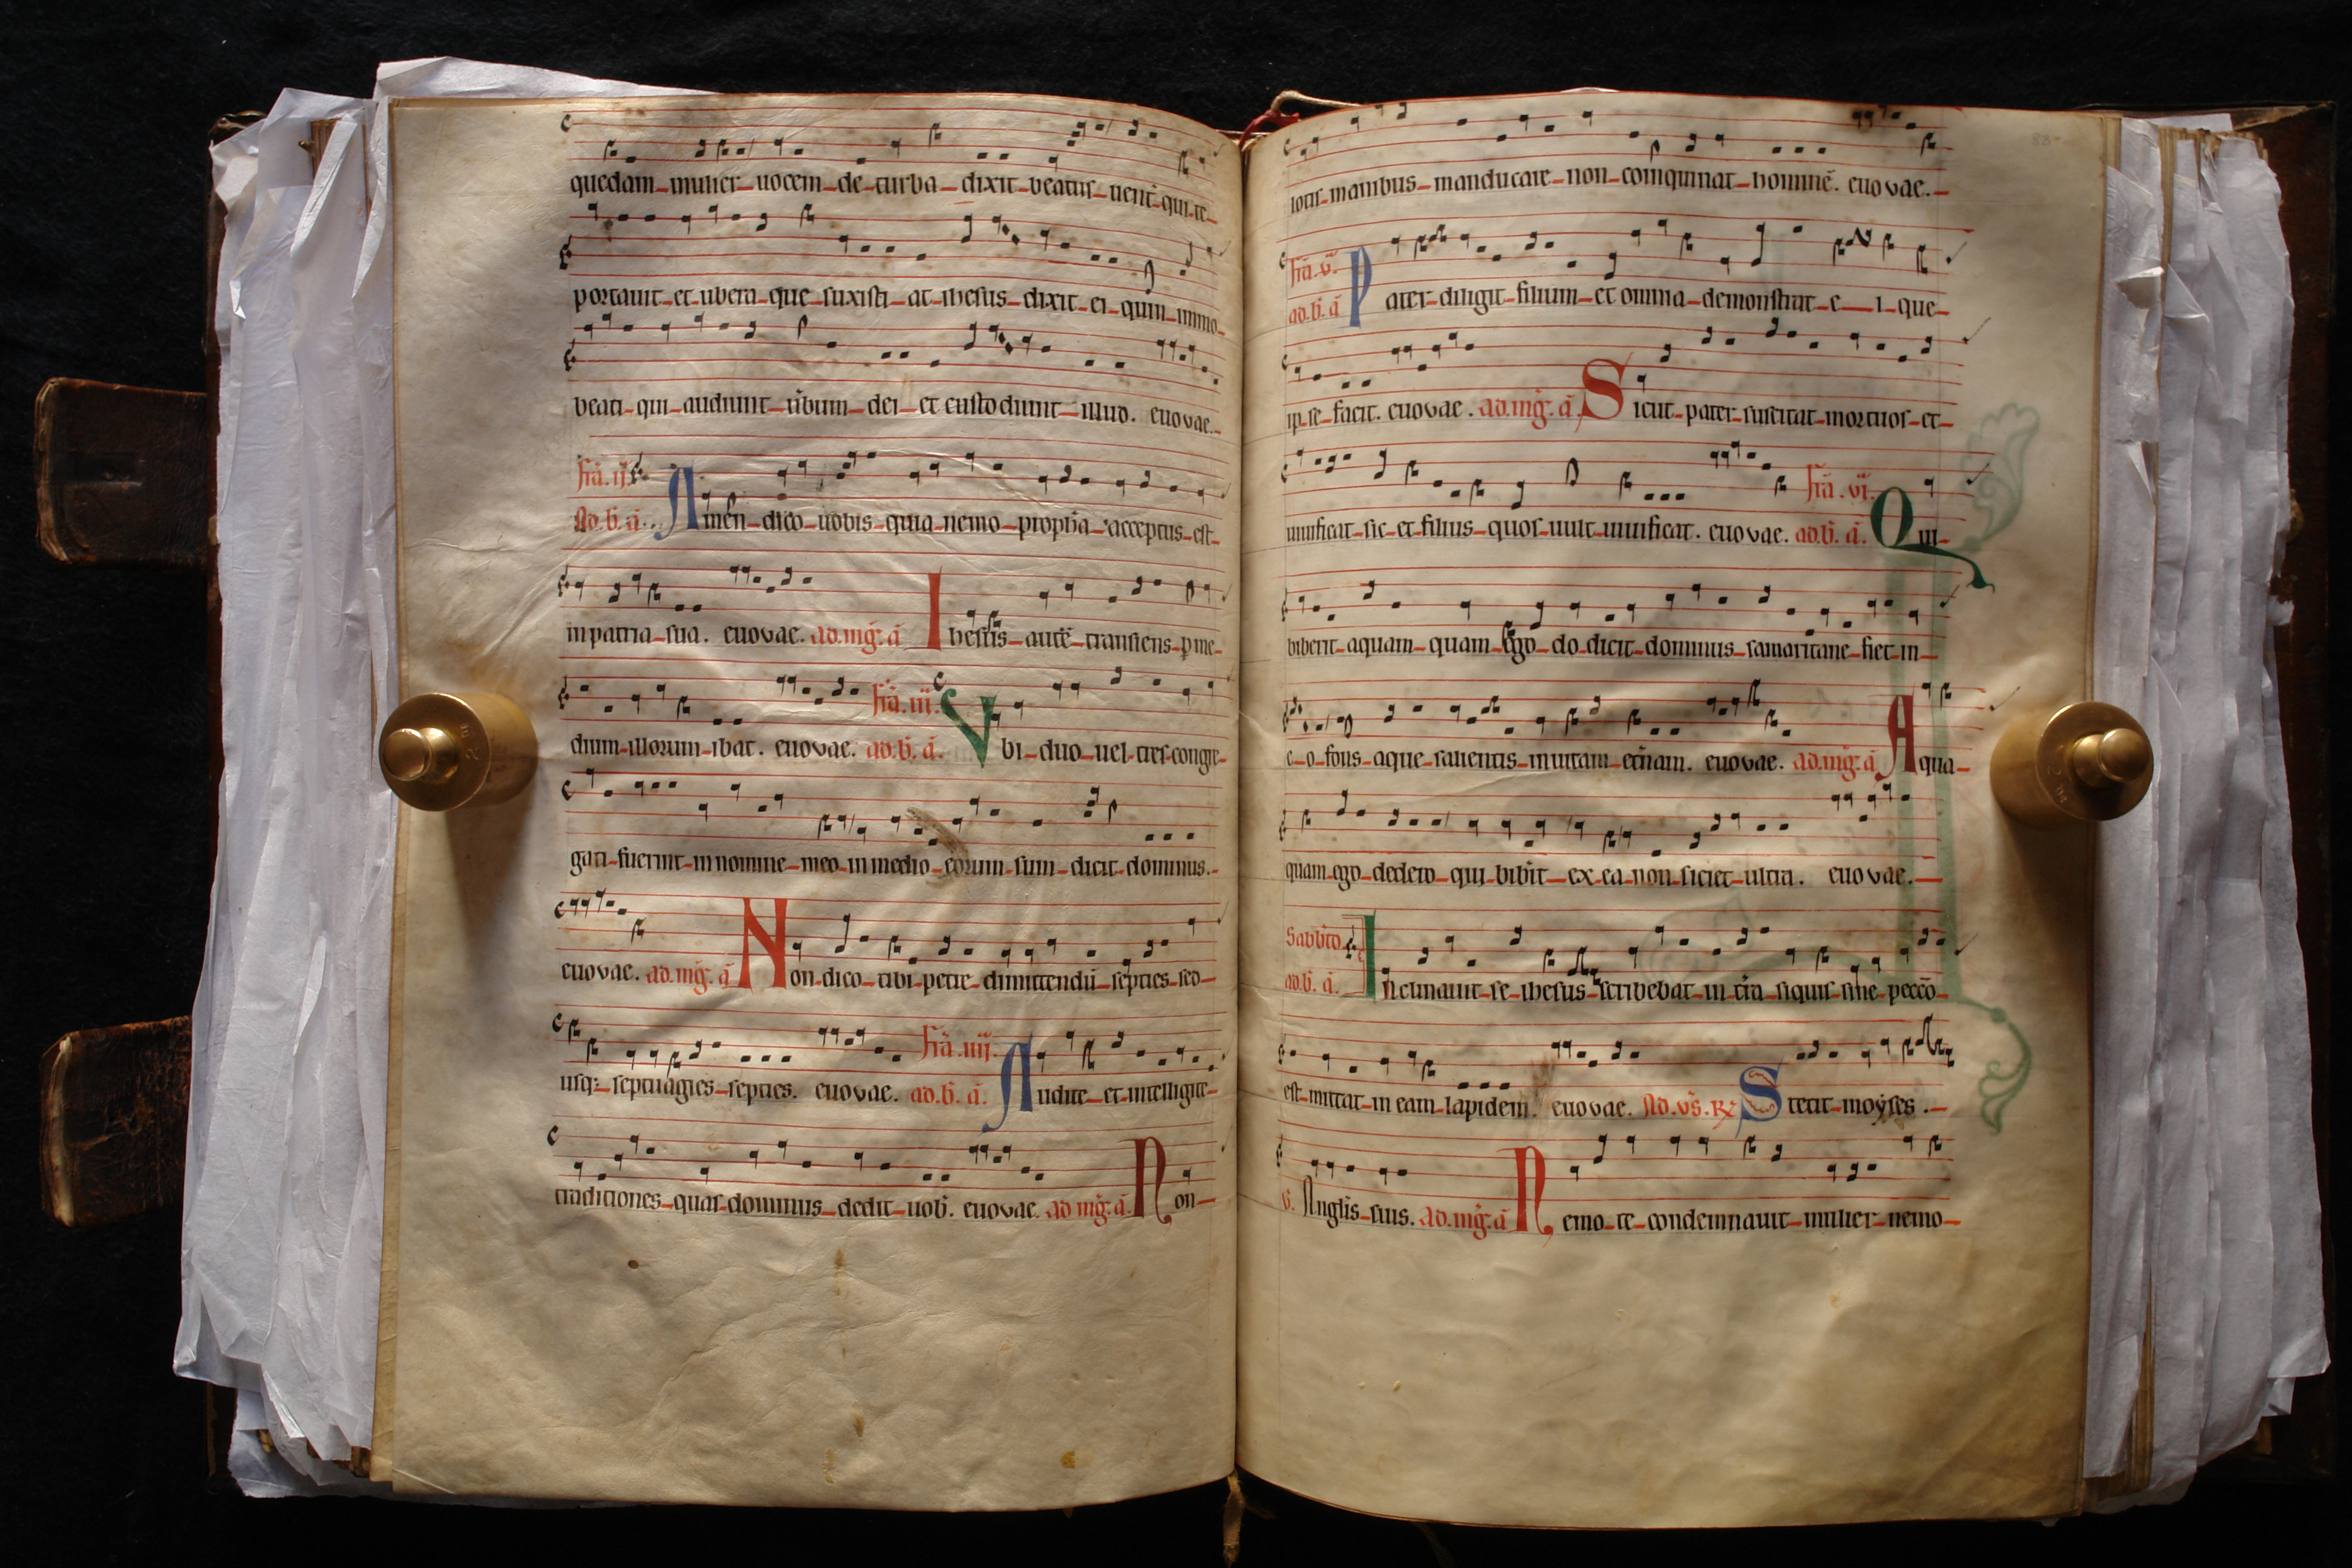 quedam mulier uocem de turba dixit beatus uent̄ qui te
portauit et ubera que suxisti at ihesus dixit ei quin immo
beati qui audiunt ūbum dei et custodiunt illud. euouae.
fr̄a. ij.
Ad. b̄. ā. Amen dico uobis quia nemo proph̄a acceptus est
in patria sua. euouae. ad. mḡ. ā Ihesus autē transiens p me
dium illorum ibat. euouae. fr̄a. iij. ad. b̄. ā. Vbi duo uel tres congre
gati fuerint in nomine meo in medio eorum sum dicit dominus.
euouae. ad. mḡ. ā Non dico tibi petre dimittendū septies sed
usq; septuagies septies. euouae. fr̄a. iiij. ad. b̄. ā. Audite et intelligite
traditiones quas dominus dedit uob̄. euouae. ad mḡ. ā. Non
lotis manibus manducare non coinquinat hominē. euouae.
fr̄a. v.
ad. b̄. ā Pater diligit filium et omnia demonstrat e i que
ip se facit. euouae. ad. mḡ. ā. Sicut pater suscitat mortuos et
uiuificat sic et filius quos uult uiuificat. euouae. fr̄a. vi. ad. b̄. ā. Qui
biberit aquam quam ego do dicit dominus samaritane fiet in
e o fons aque salientis in uitam et̄nam. euouae. ad. mḡ. ā Aqua
quam ego dedero qui bibīt ex ea non siciet ultra. euouae.
Sabb̄to.
ad. b̄. ā. Inclinauit se ihesus scribebat in t̄ra siquis sine peccō
est mittat in eam lapidem. euouae. Ad. vs̄. R Stetit moyses.
V. Angl̄is suis. ad. mḡ. ā Nemo te condemnauit mulier nemo